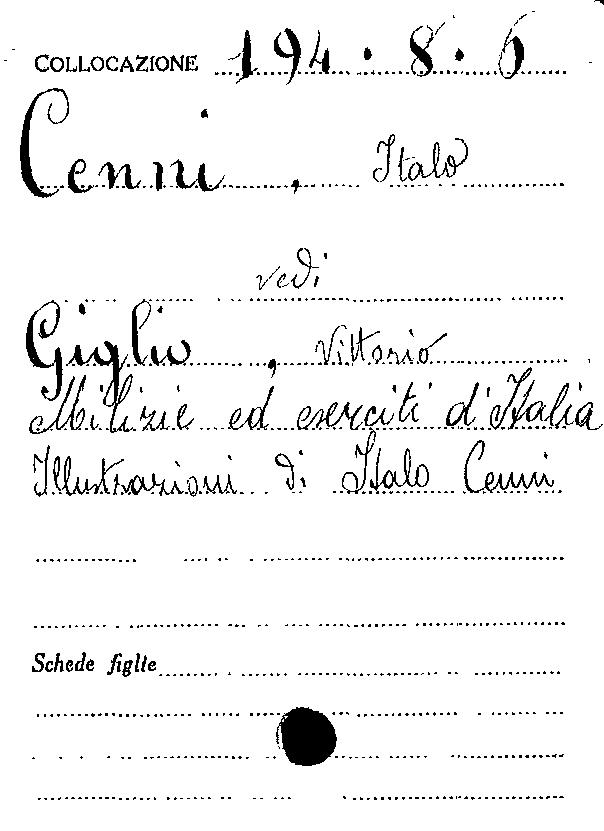 COLLOCAZIONE 194.8.6
Cenni, Italo
vedi
Giglio, Vittorio
Milizie ed eserciti d'Italia
Illustrazioni di Italo Cenni
Schede figlie